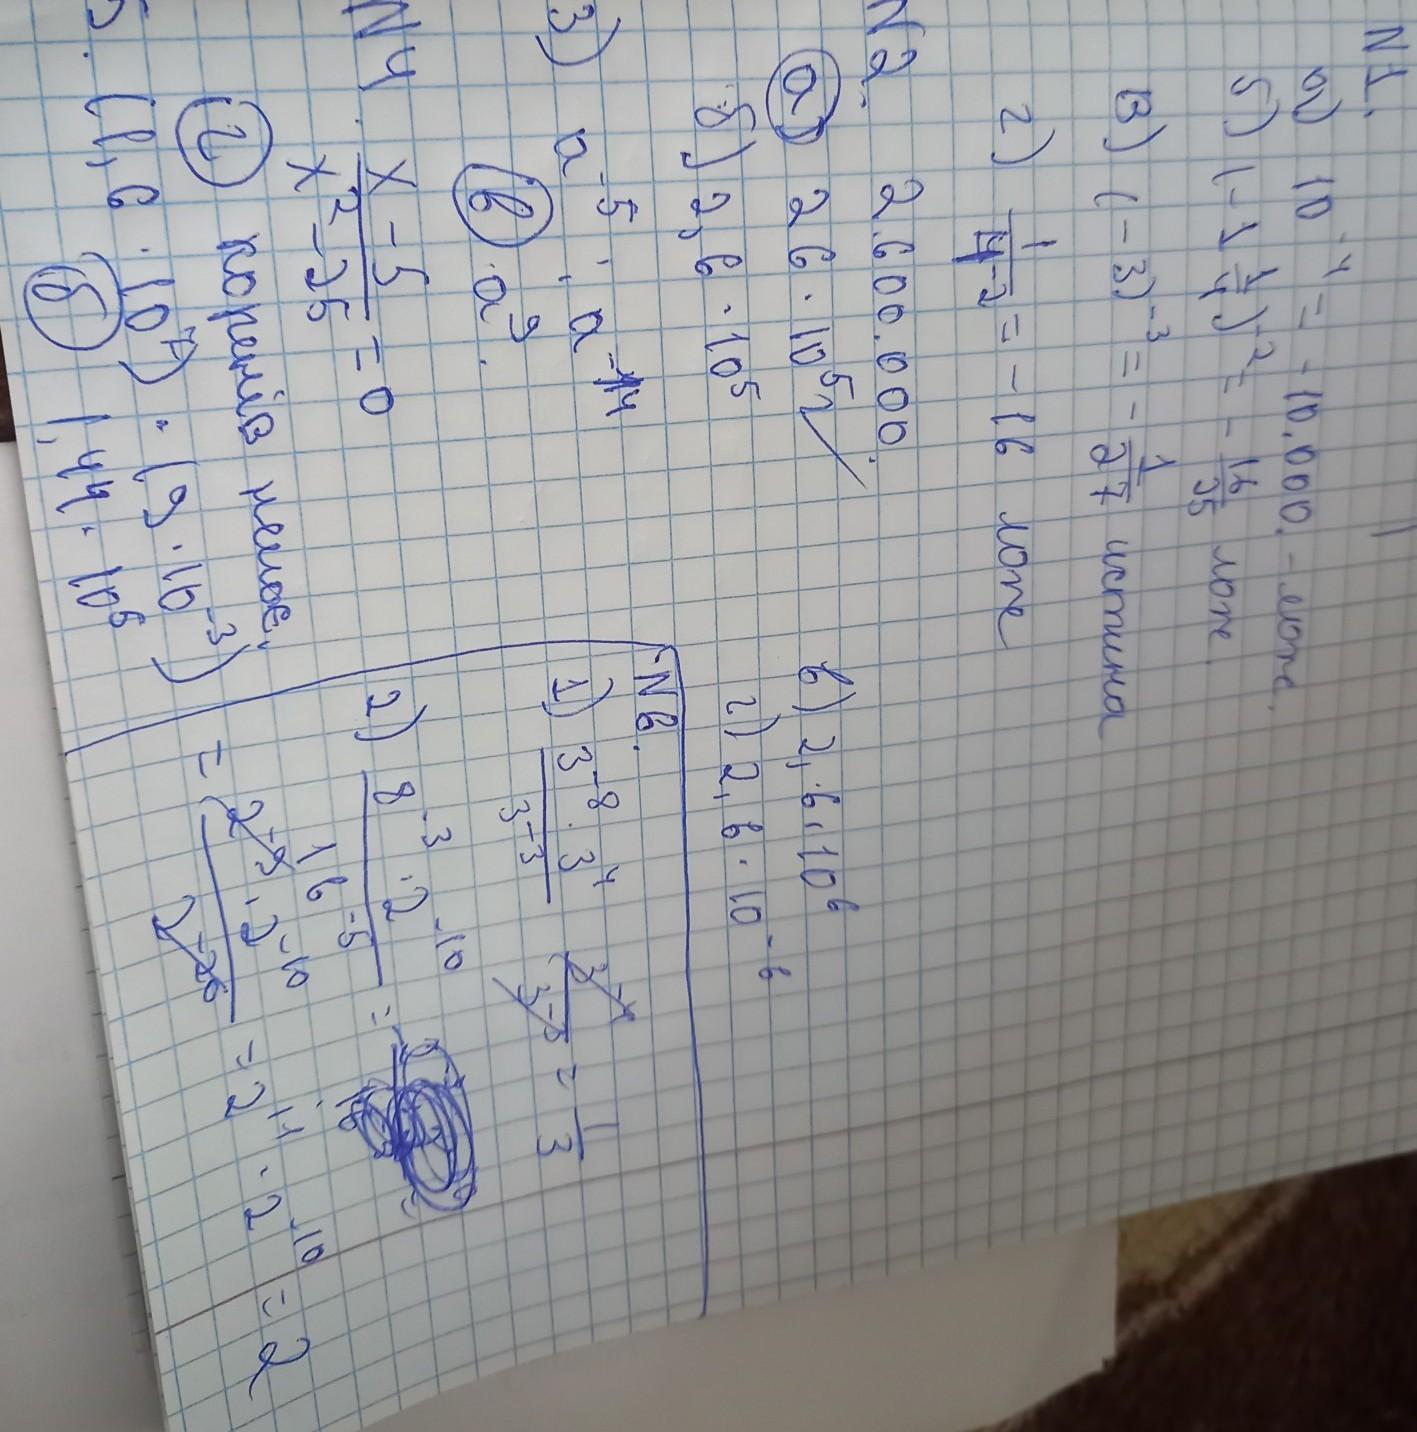 N1.
а) 10⁻⁴ = -10.000. - ложе.
б) (-1 1/4)⁻² = - 16/25 ложе.
В) (-3)⁻³ = - 1/27 истина
г) 1/4⁻² = -16 ложе
N2. 2.600.000.
а) 26 · 10⁵ √
б) 2,6 · 10⁵
в) 2,6 · 10⁶
г) 2,6 · 10⁻⁶
3) a⁻⁵ : a⁻¹⁴
в a⁹.
N4. x-5 / x²-25 = 0
г коренів немає.
5. (1,6 · 10⁷) · (9 · 10⁻³)
б 1,44 · 10⁶
N6.
1) 3⁻⁸ · 3⁴ / 3⁻³ 3⁻⁴ / 3⁻³ = 1/3
2) 8⁻³ · 2⁻¹⁰ / 16⁻⁵ =
= 2⁻⁹ · 2⁻¹⁰ / 2⁻²⁰ = 2¹¹ · 2⁻¹⁰ = 2